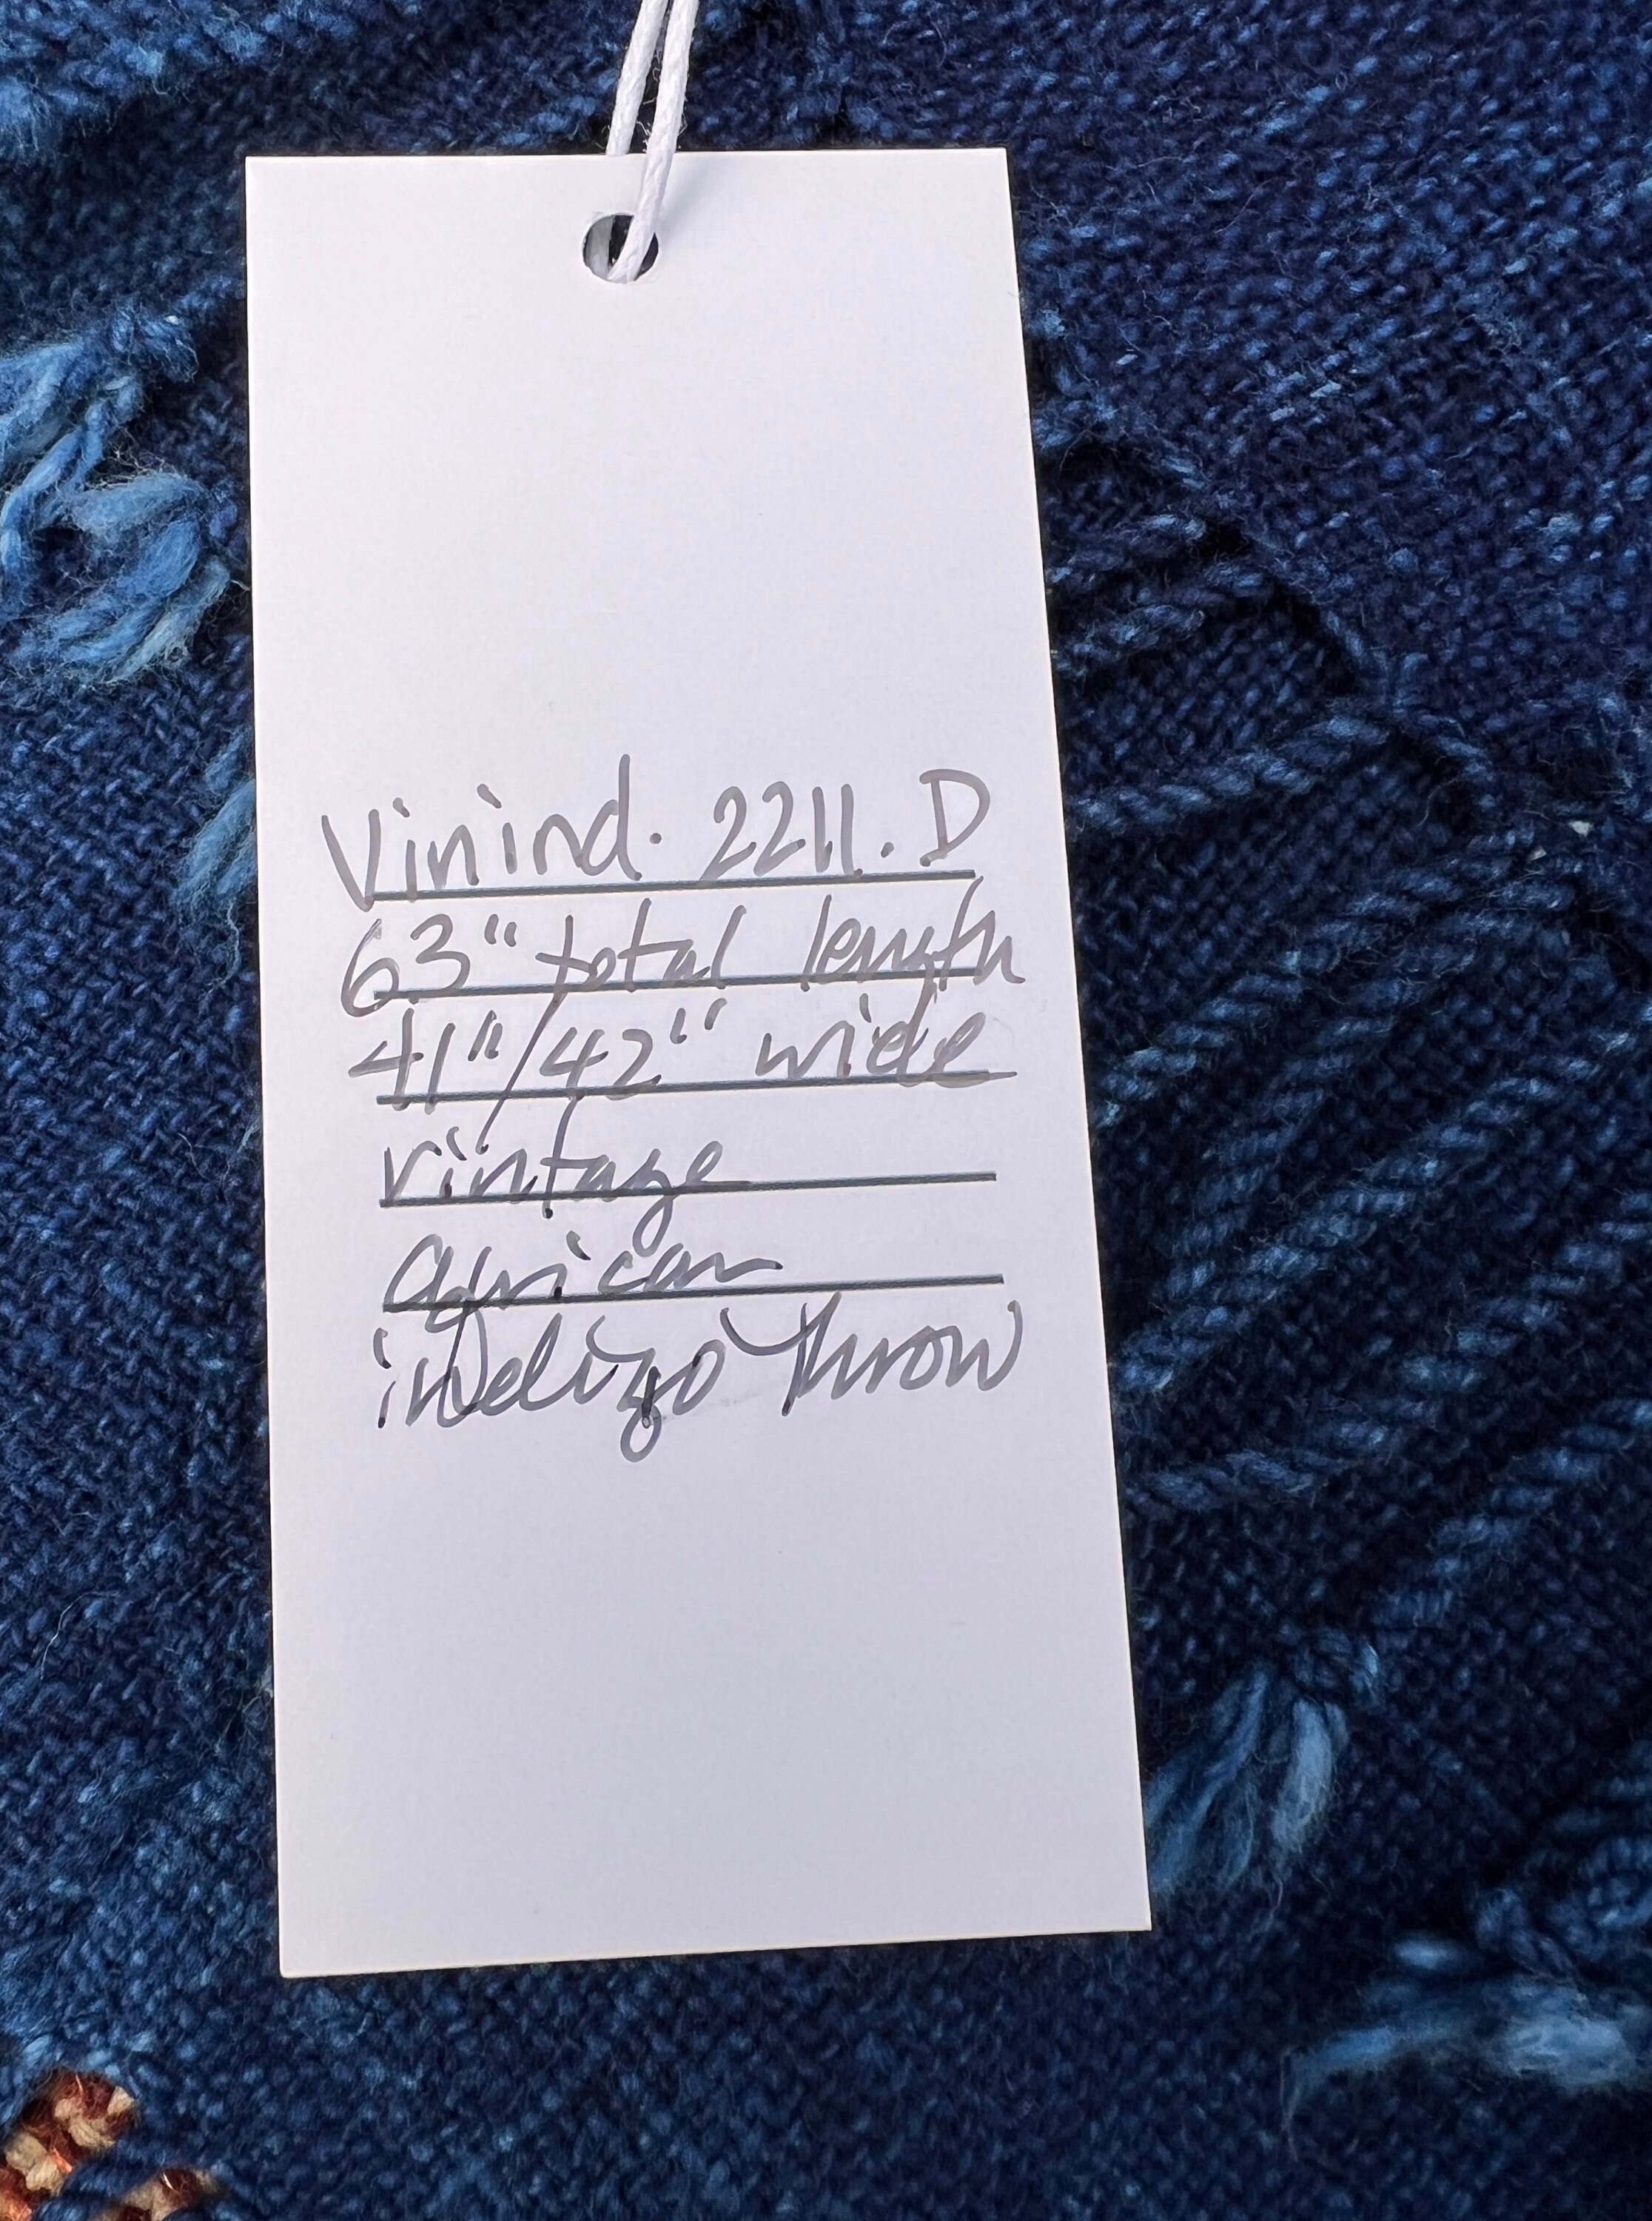 Vinind. 2211. D
63" total length
41"/42" wide
vintage
african
indigo throw